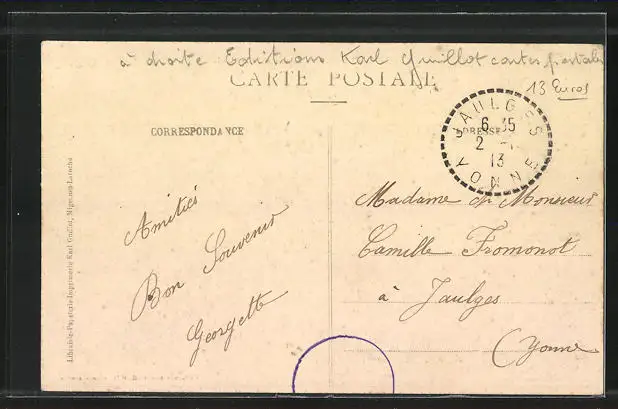 à droite Editions Karl Guillot cartes postales
CARTE POSTALE
13 Euros
CORRESPONDANCE
ADRESSE
JAULGES
6 35
2
13
YONNE
Amitiés
Bon Souvenir
Georgette
Madame & Monsieur
Camille Fromonot
à Jaulges
(Yonne
Librairie-Papeterie-Imprimerie Karl Guillot, Migennes-Laroche